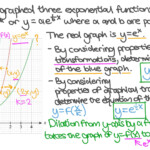 graphed three exponential function
or y = ae^kx where a and b are po
The red graph is y=e^x
- By considering propertie
transformations, determin
of the blue graph.
- By considering
properties of graphical tra
determine the equation of th
y=f(
y=e
Dilation from y-axis by a f
takes the graph of y=f(x) to